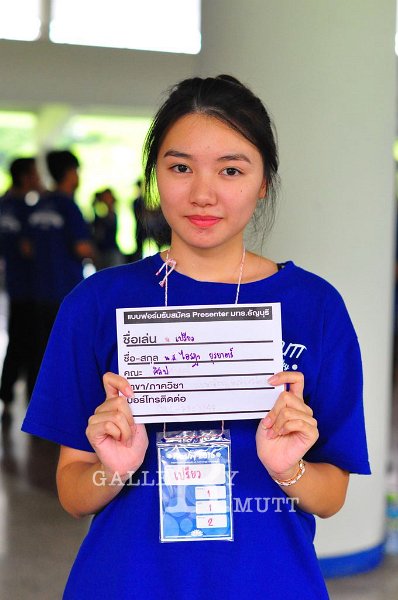 แบบฟอร์มรับสมัคร Presenter มทร.ธัญบุรี
ชื่อเล่น เปรี้ยว
ชื่อ-สกุล น.ส
คณะ ศิลป์
สาขา/ภาควิชา
เบอร์โทรติดต่อ
เปรี้ยว
1
1
2
GALLERY
MUTT